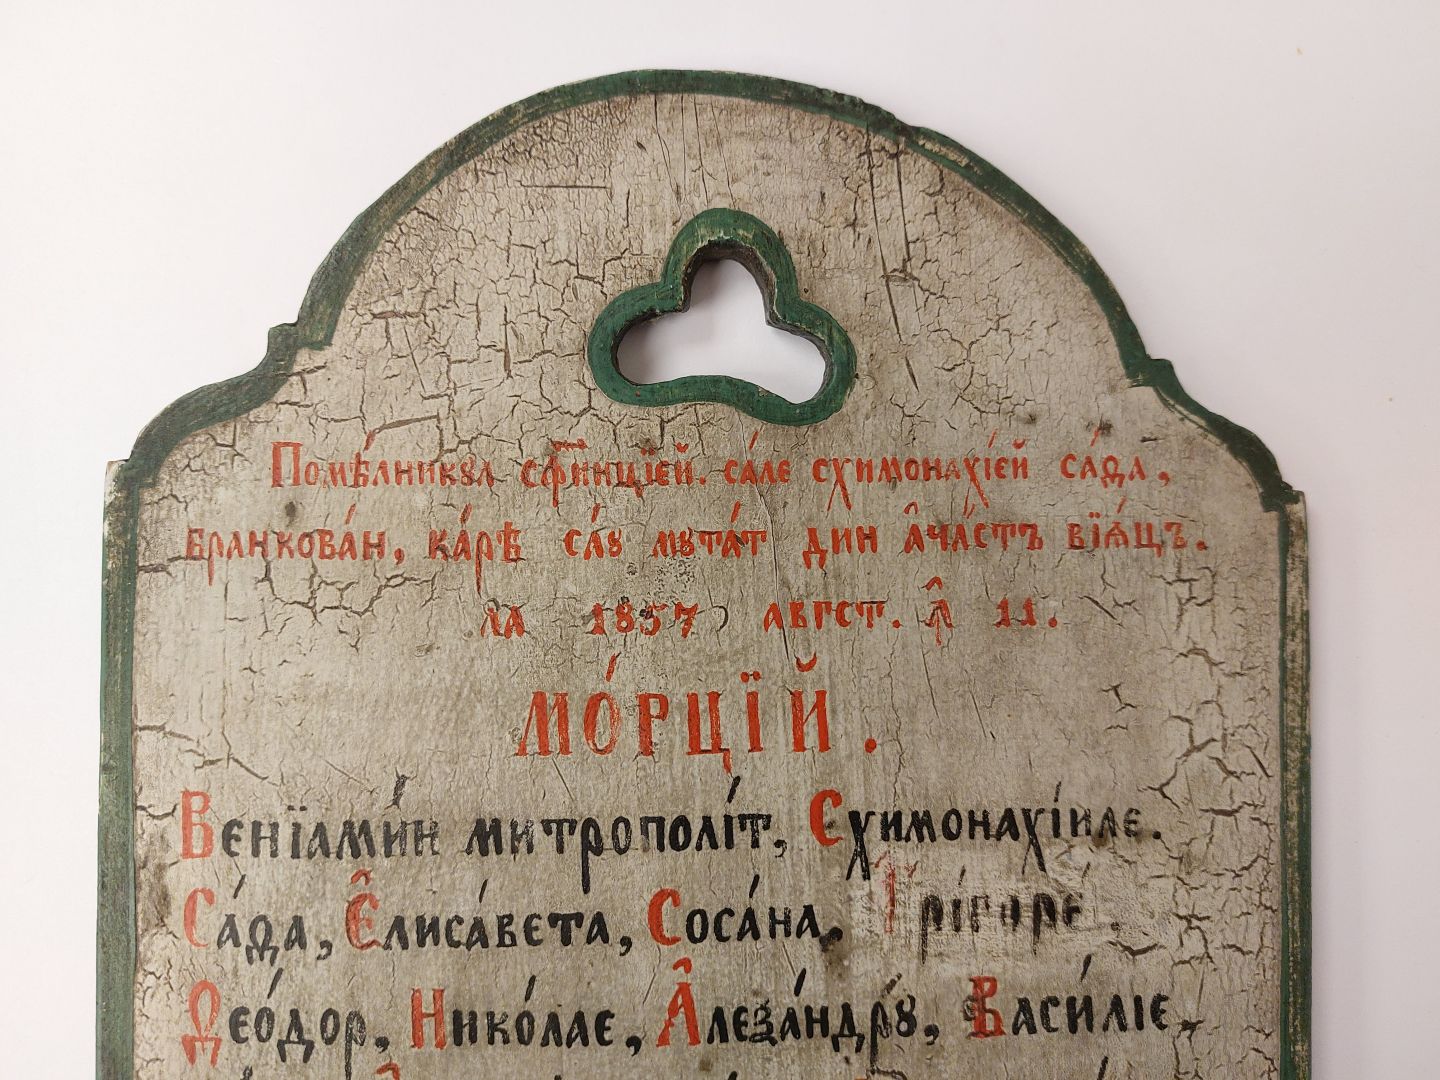 Помѣ́лникꙋл сфи҃нцїей. са́ле схимонахі́ей са́фта,
Бранкова́н, ка́рѣ са́ꙋ мꙋта́т дин а̂ча́стъ вїѧ́цъ.
ла 1857 авгст. л̂ 11.
МО́РЦЇЙ.
Венїами́н митрополі́т, Схимонахі́иле.
Са́фта, Е̂лиса́вета, Соса́на, Григоре́.
Ѳео́дор, Нико́лае, А̂леѯа́ндрꙋ, Васи́лїе,